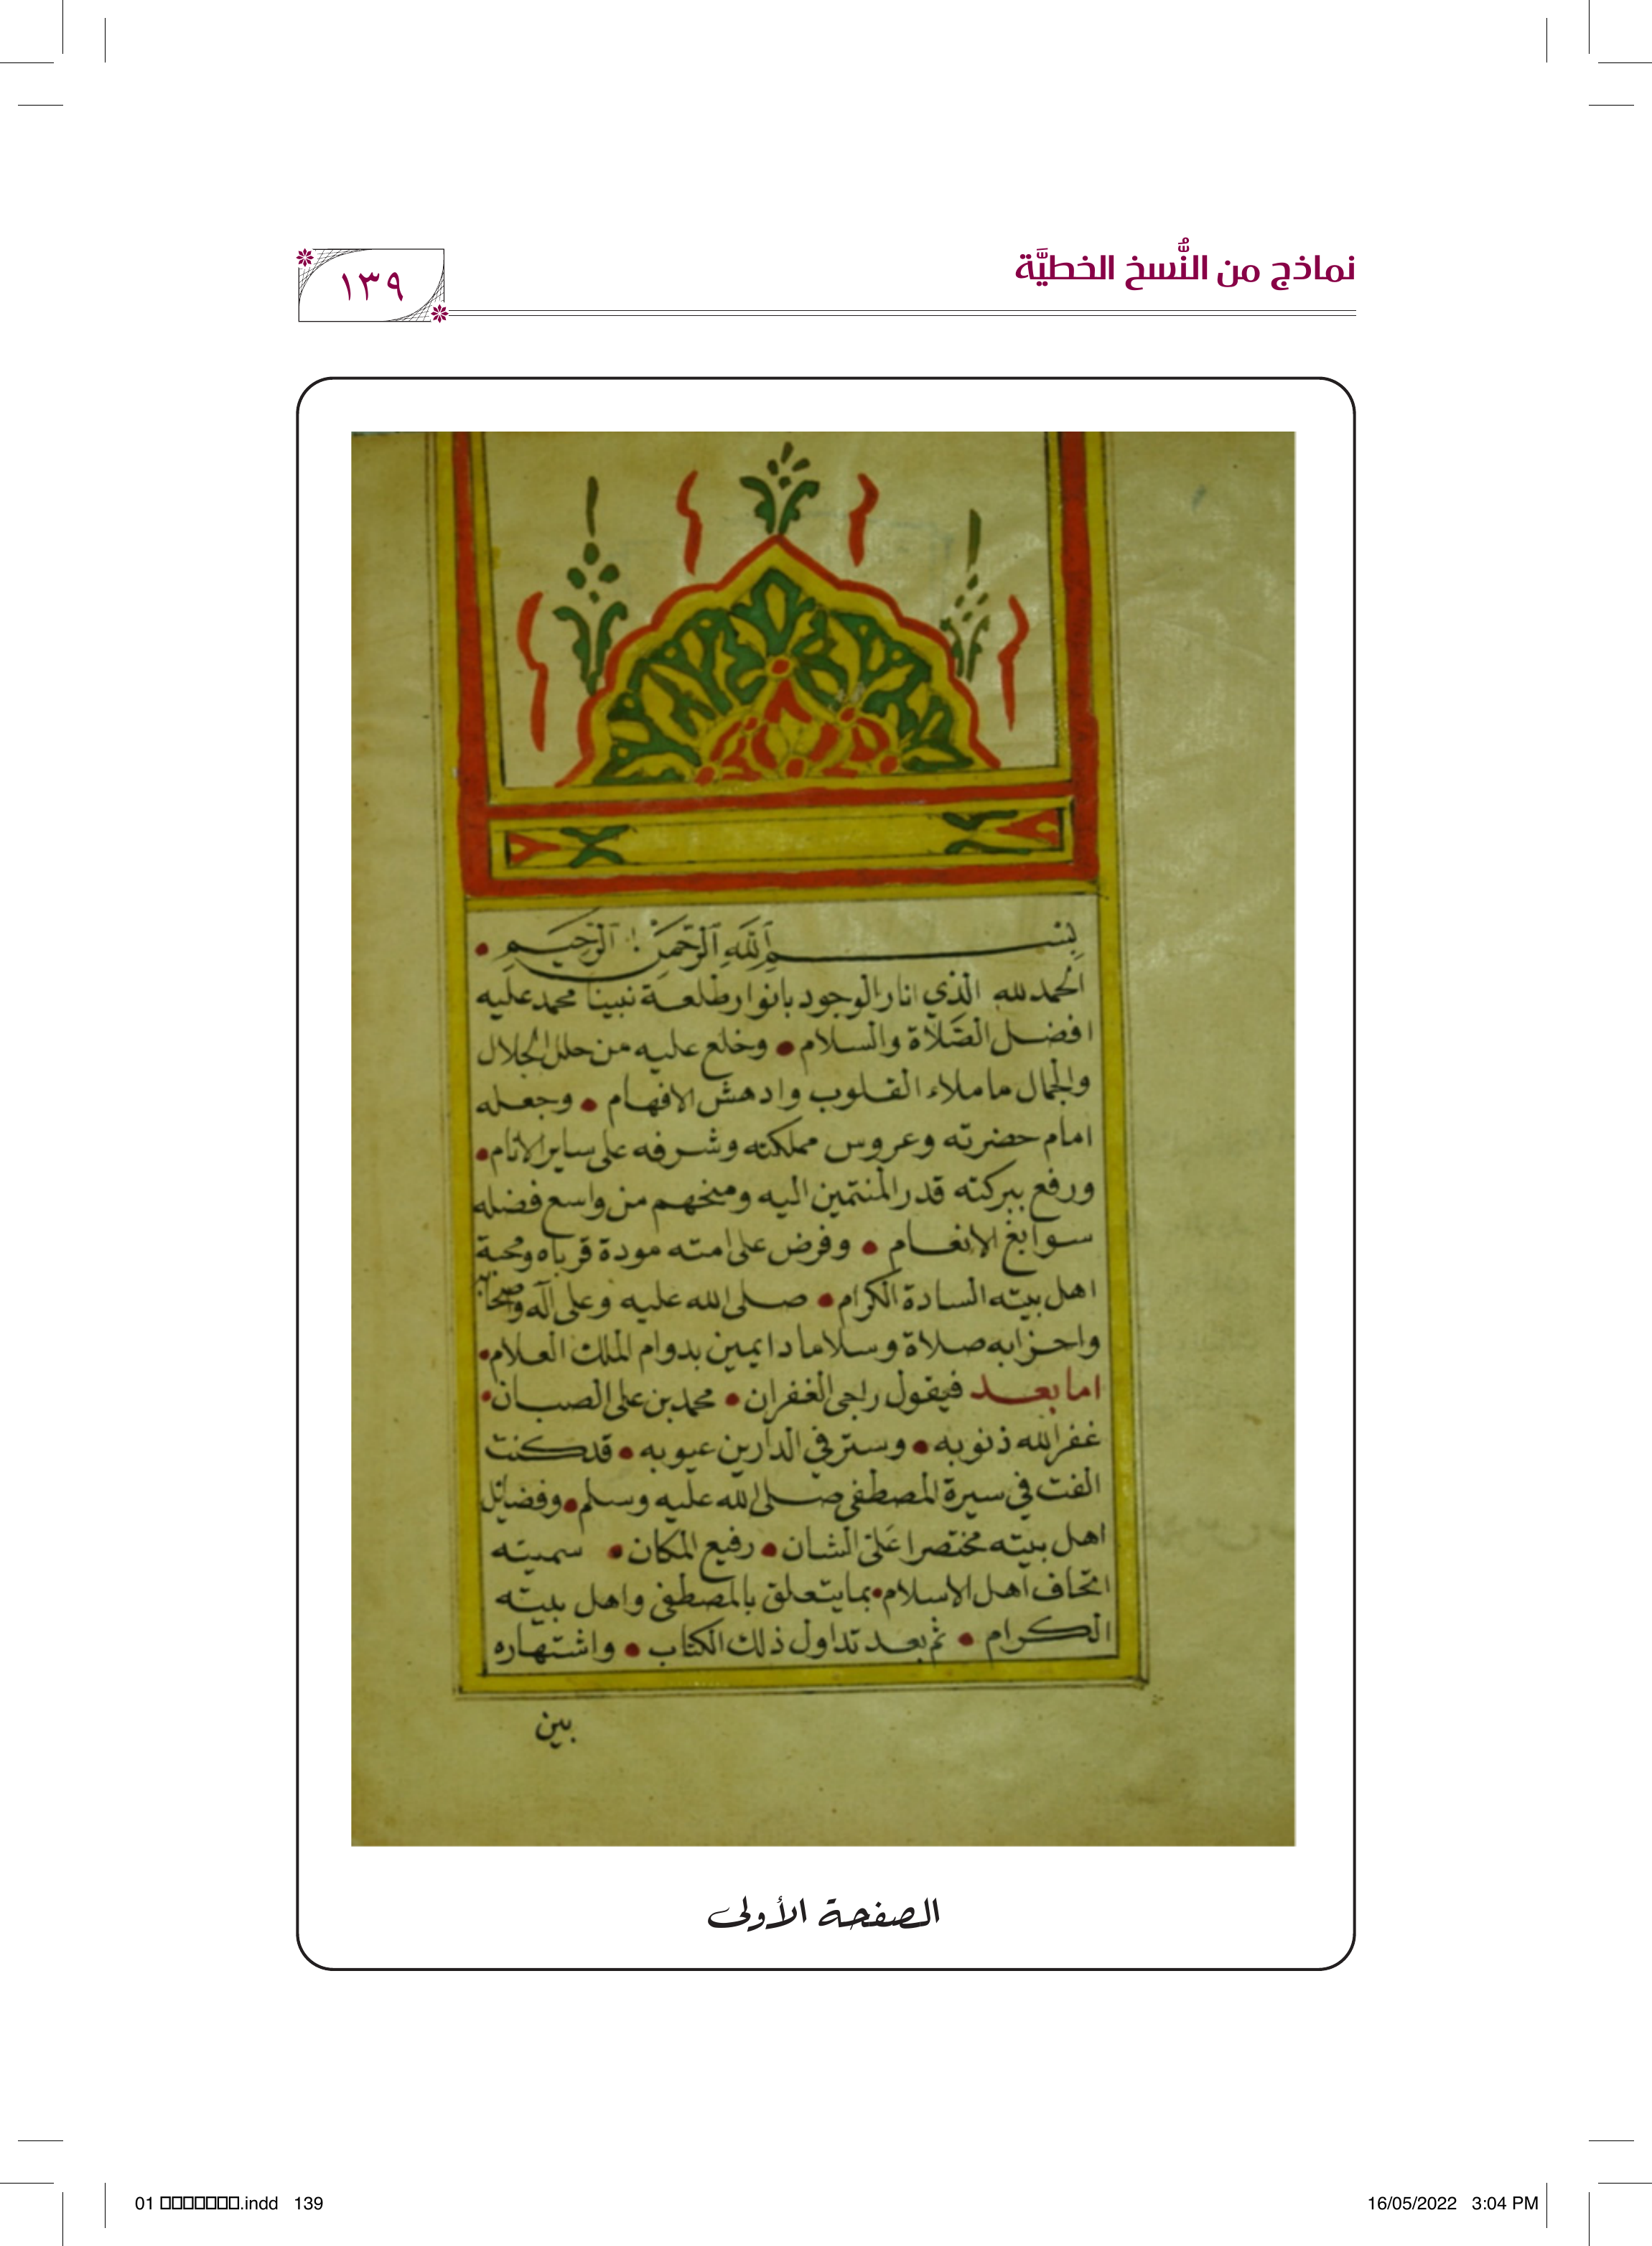 نماذج من النُّسخ الخطيَّة
١٣٩
بِسْمِ اللَّهِ الرَّحْمَنِ الرَّحِيمِ
الحمد لله الذي انار الوجود بانوار طلعة نبينا محمد عليه
افضل الصَّلاة والسلام • وخلع عليه من حلل الجلال
والجمال ما ملاء القلوب وادهش الافهام • وجعله
امام حضرته وعروس مملكته وشرفه على ساير الانام •
ورفع ببركته قدر المنتمين اليه ومنحهم من واسع فضله
سوابغ الانعام • وفرض على امته مودة قرباه ومحبة
اهل بيته السادة الكرام • صلى الله عليه وعلى آله وأصحابه
واحزابه صلاة وسلاما دايمين بدوام الملك العلام •
اما بعد فيقول راجى الغفران • محمد بن على الصبان •
غفر الله ذنوبه • وستر في الدارين عيوبه • قد كنت
الفت في سيرة المصطفى صلى الله عليه وسلم • وفضائل
اهل بيته مختصرا عَلىَّ الشان • رفيع المكان • سميته
اتحاف اهل الاسلام • بما يتعلق بالمصطفى واهل بيته
الكرام • ثم بعد تداول ذلك الكتاب • واشتهاره
بين
الصفحة الأولى
01 □□□□□□□.indd 139
16/05/2022 3:04 PM